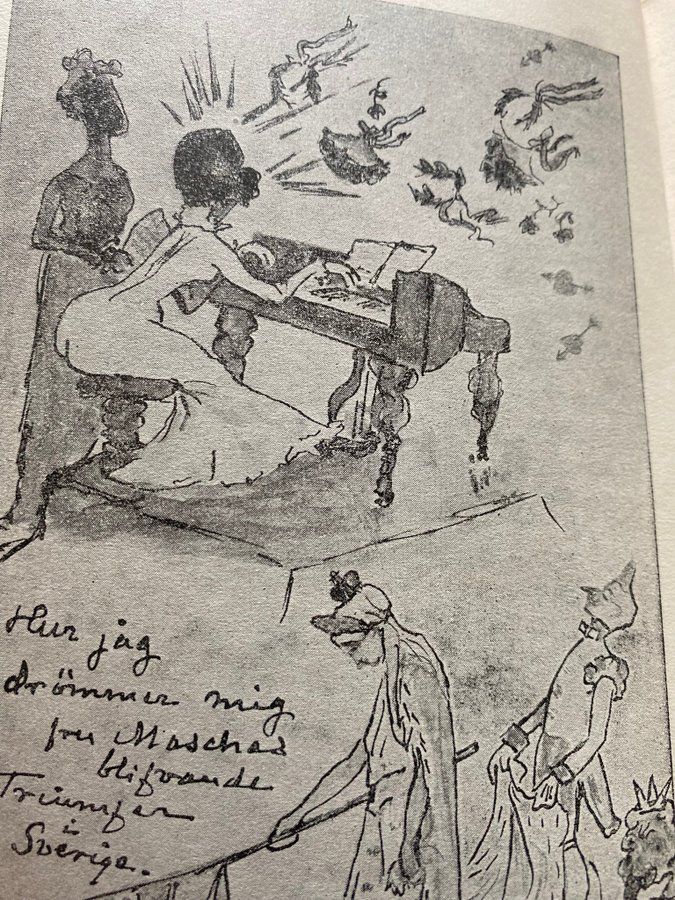 Hur jag
drömmer mig
fru Maschas
blifvande
Triumfer
i
Sverige.